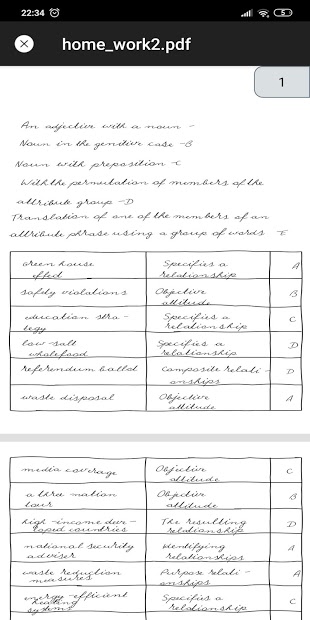 22:34
5
home_work2.pdf
1
An adjective with a noun -
Noun in the genitive case -B
Noun with preposition -C
With the permutation of members of the
attribute group -D
Translation of one of the members of an
attribute phrase using a group of words E
Green house
effect
Specifies a
relationship
A
safety violations
Objective
attitude
B
education stra-
tegy
Specifies a
relationship
C
low-salt
wholefood
Specifies a
relationship
D
Referendum ballot
Composite relati-
onships
D
waste disposal
Objective
attitude
A
media coverage
Objective
attitude
C
a three nation
tour
Objective
attitude
B
high-income deve-
loped countries
The resulting
relationship
D
national security
adviser
identifying
relationships
A
waste reduction
measures
Purpose relati-
onships
A
energy-efficient
heating
systems
Specifies a
relationship
C